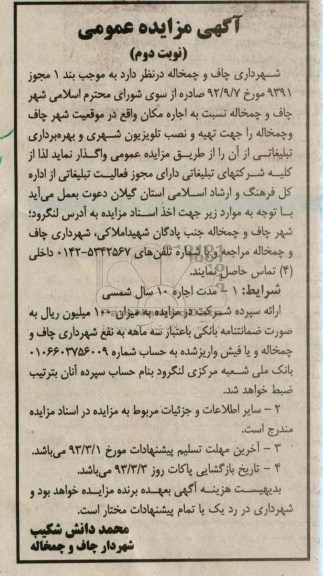 آگهی مزایده عمومی
(نوبت دوم)
شهرداری چاف و چمخاله درنظر دارد به موجب بند ۱ مجوز
۹۳۹۱ مورخ ۹۲/۹/۷ صادره از سوی شورای محترم اسلامی شهر
چاف و چمخاله نسبت به اجاره مکان واقع در موقعیت شهر چاف
وچمخاله را جهت تهیه و نصب تلویزیون شهری و بهره‌برداری
تبلیغاتی از آن را از طریق مزایده عمومی واگذار نماید لذا از
کلیه شرکتهای تبلیغاتی دارای مجوز فعالیت تبلیغاتی از اداره
کل فرهنگ و ارشاد اسلامی استان گیلان دعوت بعمل می‌آید
با توجه به موارد زیر جهت اخذ اسناد مزایده به آدرس لنگرود؛
شهر چاف و چمخاله جنب پادگان شهیداملاکی، شهرداری چاف
و چمخاله مراجعه و با شماره تلفن‌های ۵۳۴۲۵۶۷-۰۱۴۲ داخلی
(۴) تماس حاصل نمایند.
شرایط: ۱ – مدت اجاره ۱۰ سال شمسی
ارائه سپرده شرکت در مزایده به میزان ۱۰۰ میلیون ریال به
صورت ضمانتنامه بانکی باعتبار سه ماهه به نفع شهرداری چاف و
چمخاله و یا فیش واریزشده به حساب شماره ۰۱۰۶۶۰۳۷۵۶۰۰۹
بانک ملی شعبه مرکزی لنگرود بنام حساب سپرده آنان بترتیب
ضبط خواهد شد.
۲ – سایر اطلاعات و جزئیات مربوط به مزایده در اسناد مزایده
مندرج است.
۳ – آخرین مهلت تسلیم پیشنهادات مورخ ۹۳/۳/۱ می‌باشد.
۴ – تاریخ بازگشایی پاکات روز ۹۳/۳/۳ می‌باشد.
بدیهیست هزینه آگهی بعهده برنده مزایده خواهد بود و
شهرداری در رد یک یا تمام پیشنهادات مختار است.
محمد دانش شکیب
شهردار چاف و چمخاله